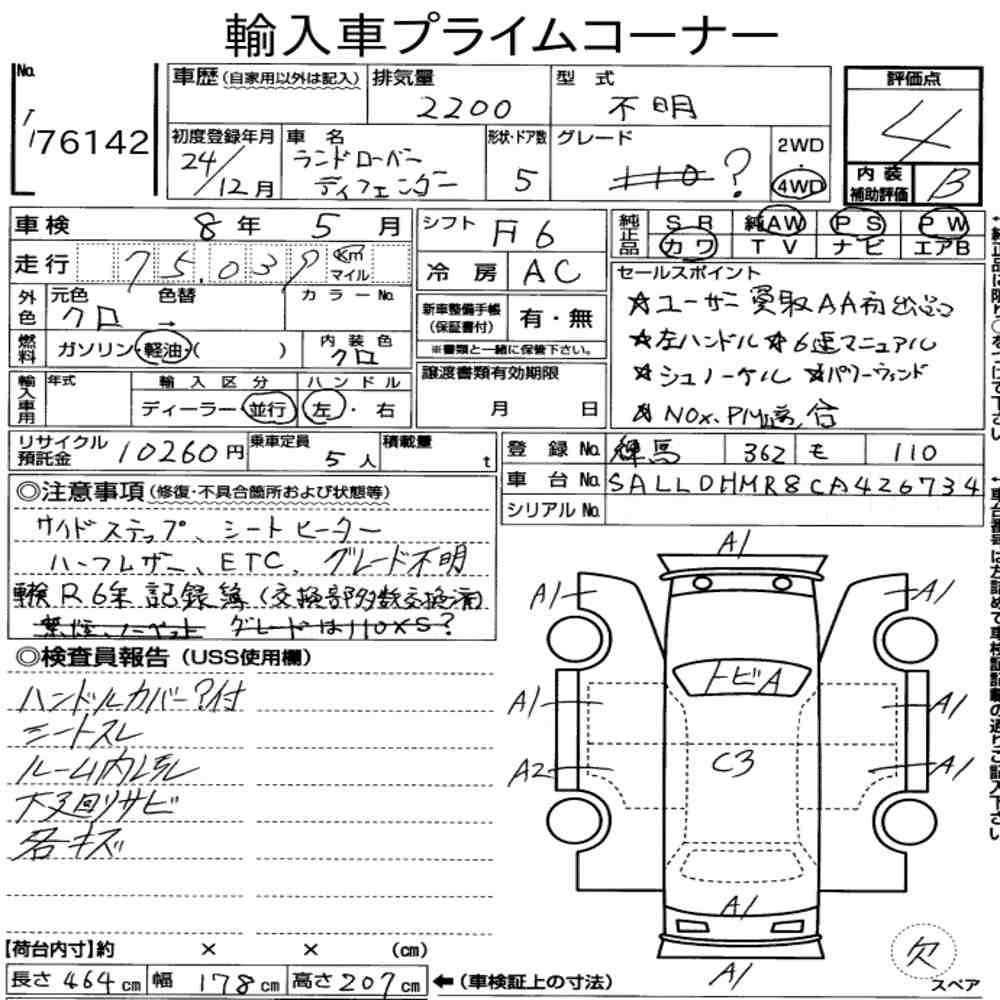 輸入車プライムコーナー
No.
76142
車歴（自家用以外は記入） 排気量 2200 型式 不明
評価点 4
初度登録年月 24/12月 車名 ランドローバー ディフェンダー 形状・ドア数 5 グレード 110 ? 2WD・4WD
内装補助評価 B
車検 8年 5月
走行 75,039 Km マイル
シフト F6
冷房 AC
純正品 SR 純AW PS PW
カワ TV ナビ エアB
外色 元色 クロ 色替 → カラーNo.
燃料 ガソリン・軽油・( ) 内装色 クロ
新車整備手帳（保証書付） 有・無
※書類と一緒に保管下さい。
セールスポイント
☆ユーザー買取AA初出品
☆左ハンドル ☆6速マニュアル
☆シュノーケル ☆パワーウィンド
☆NOx.PM適合
輸入車用 年式 輸入区分 ディーラー・並行 ハンドル 左・右
譲渡書類有効期限 月 日
リサイクル預託金 10260円 乗車定員 5人 積載量 t
登録No. 練馬 362 モ 110
車台No. SALLDHMR8CA426734
シリアルNo.
◎注意事項（修復・不具合箇所および状態等）
サイドステップ、シートヒーター
ハーフレザー、ETC、グレード不明
車検R6年 記録簿（交換部多数交換済）
グレードは110XS?
◎検査員報告（USS使用欄）
ハンドルカバー?付
シートスレ
ルーム内
下廻りサビ
各キズ
A1
A1 A1
トビA
A1 A1
A2 C3 A1
A1
A1
欠
スペア
【荷台内寸】約 × × (cm)
長さ 464cm 幅 178cm 高さ 207cm ←（車検証上の寸法）